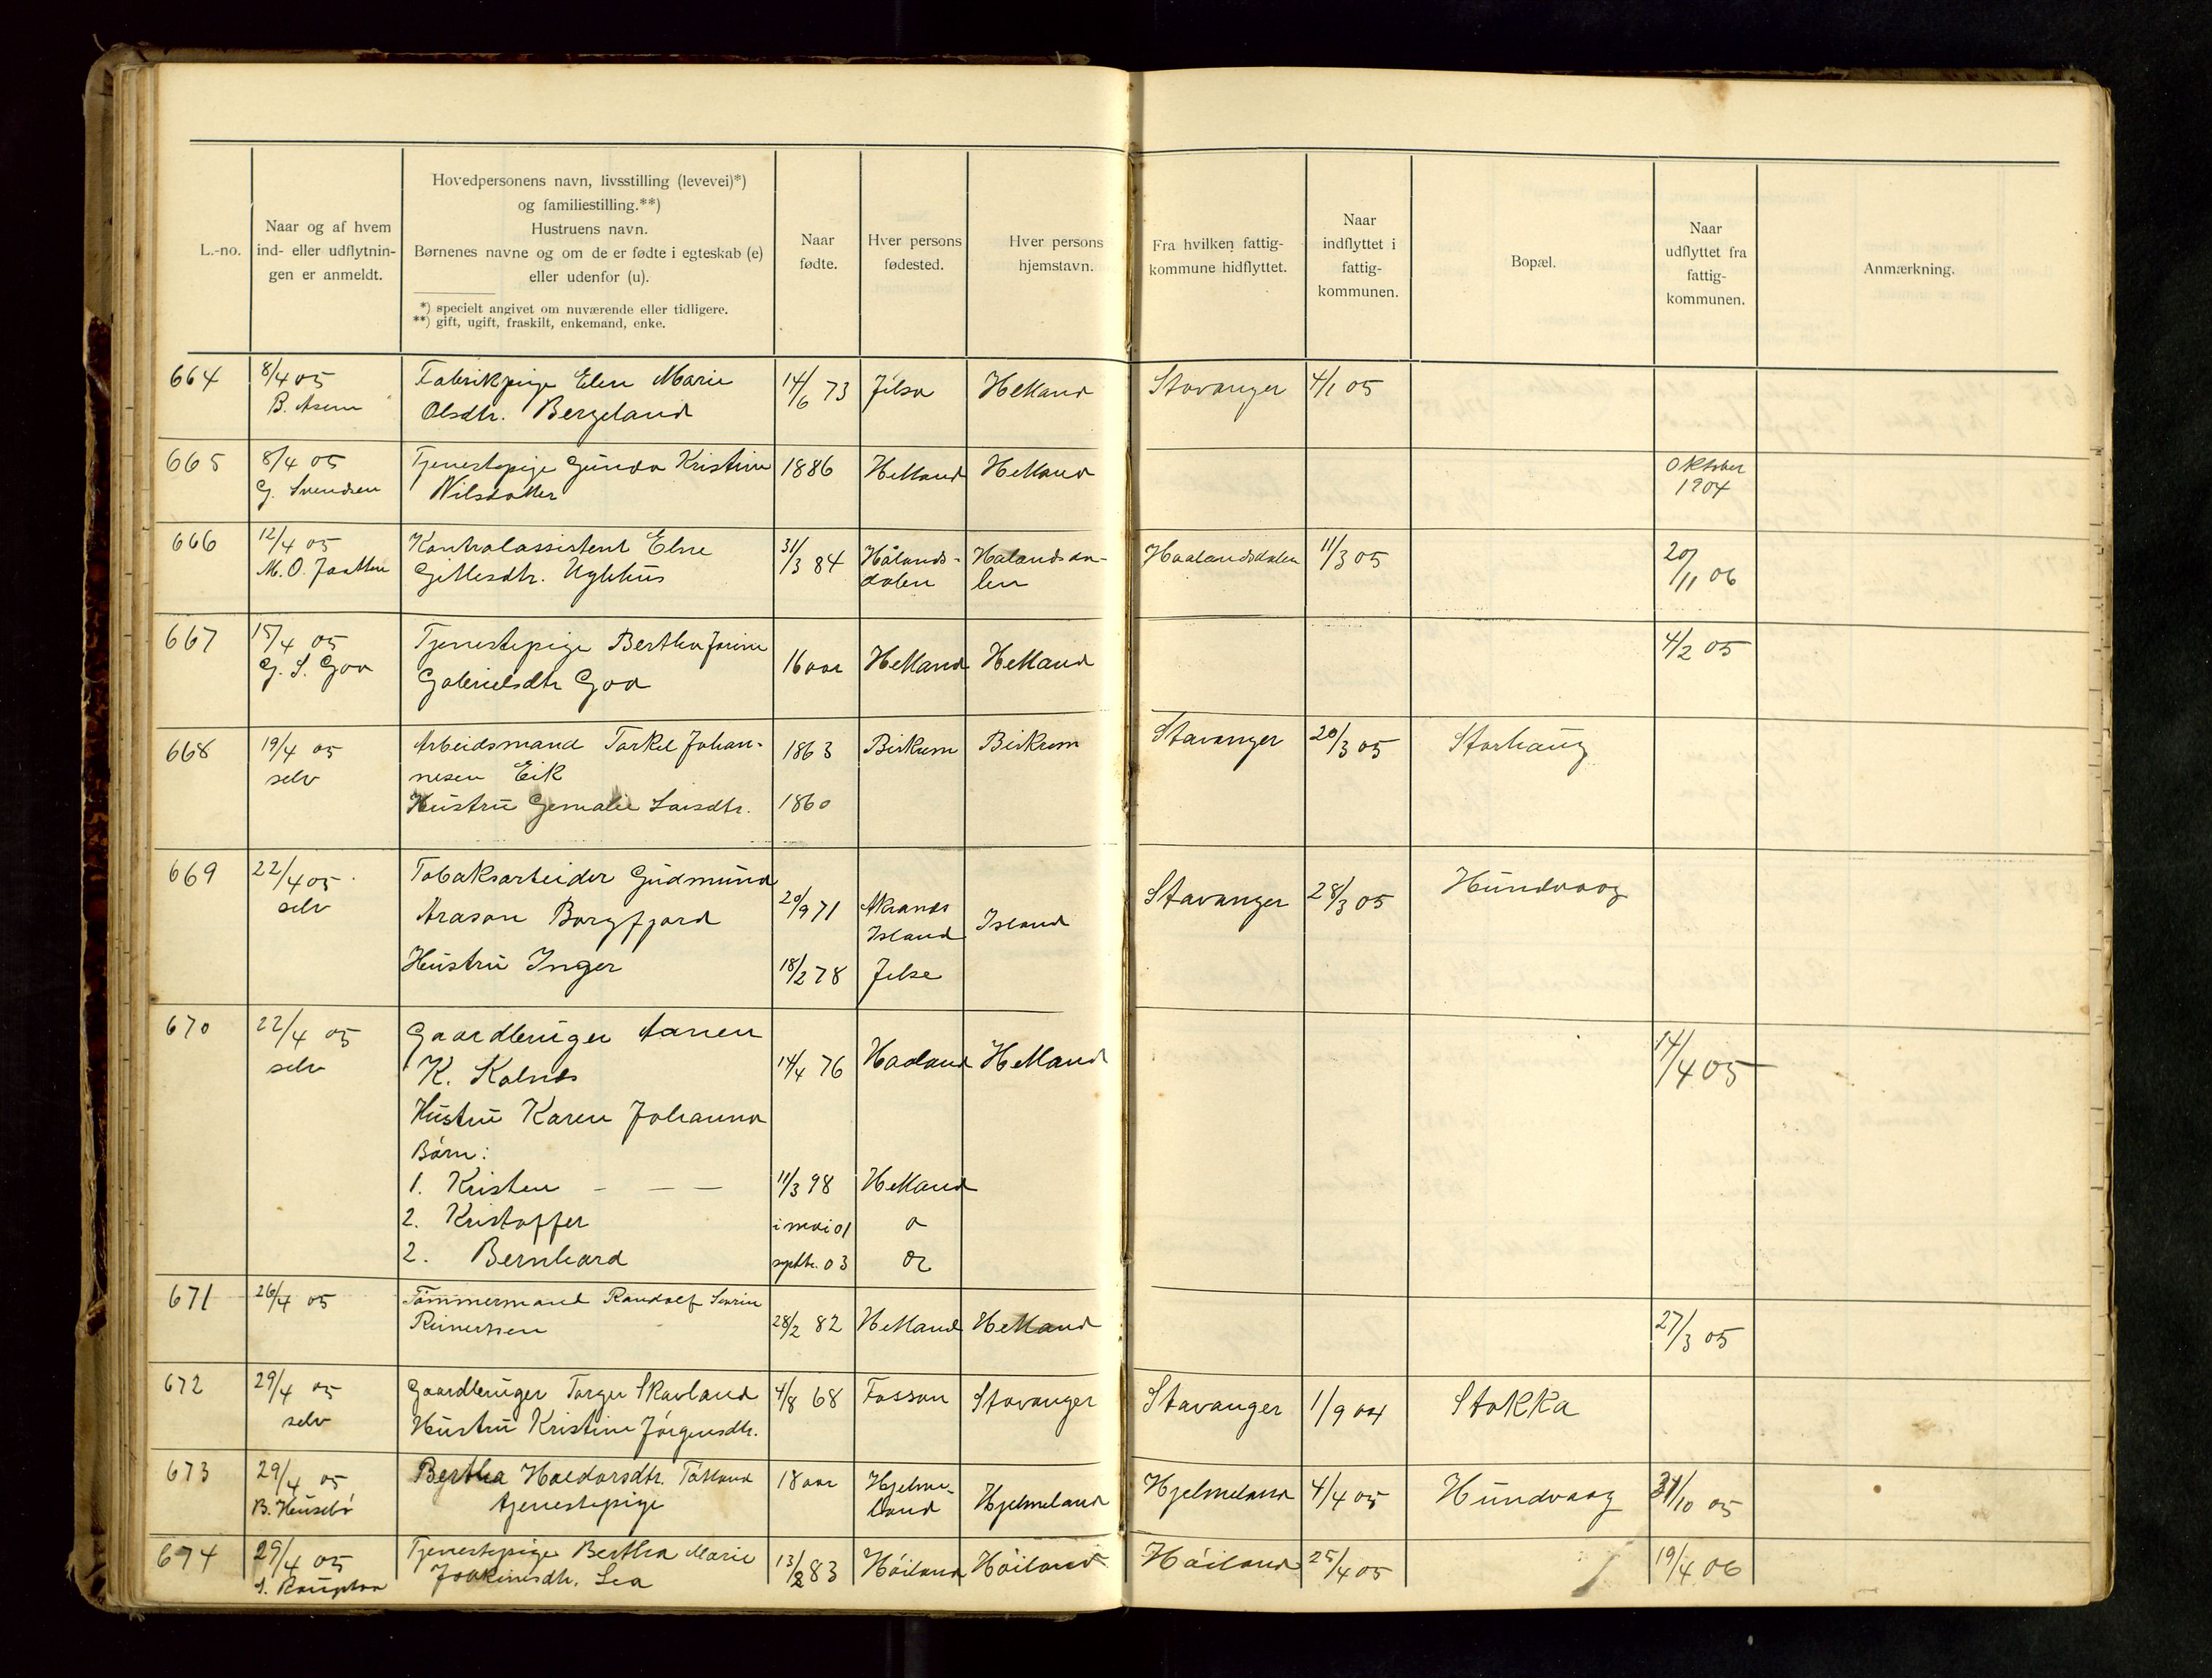 L.-no.
Naar og af hvem
ind- eller udflytnin-
gen er anmeldt.
Hovedpersonens navn, livsstilling (levevei)*)
og familiestilling.**)
Hustruens navn.
Børnenes navne og om de er fødte i egteskab (e)
eller udenfor (u).
*) specielt angivet om nuværende eller tidligere.
**) gift, ugift, fraskilt, enkemand, enke.
Naar
fødte.
Hver persons
fødested.
Hver persons
hjemstavn.
Fra hvilken fattig-
kommune hidflyttet.
Naar
indflyttet i
fattig-
kommunen.
Bopæl.
Naar
udflyttet fra
fattig-
kommunen.
Anmærkning.
664 8/4 05 Fabrikpige Elen Marie 14/6 73 Jelsa Hetland Stavanger 4/1 05
Olsdtr. Bergeland
665 8/4 05 Tjenestepige Gunda Kristine 1886 Hetland Hetland Oktober
G. Svendsen Nilsdatter 1904
666 12/4 05 Kontrolassistent Elne 31/3 84 Hålands- Halandsda- Haalandsdalen 11/3 05 20/11 06
M. O. Jaatten Gittlesdtr. Uglehus dalen len
667 15/4 05 Tjenestepige Bertha Jorine 16 aar Hetland Hetland 4/2 05
G. S. Goa Gabrielsdtr Goa
668 19/4 05 Arbeidsmand Torkel Johan- 1863 Birkrem Birkrem Stavanger 20/3 05 Storhaug
selv nesen Eik
Hustru Gemalie Larsdtr. 1860
669 22/4 05 Tobaksarbeider Gudmund 20/9 71 Akranes Island Stavanger 28/3 05 Hundvaag
selv Arason Borgfjord Island
Hustru Inger 18/2 78 Jelse
670 22/4 05 Gaardbruger Aanen 14/4 76 Haaland Hetland 14/4 05
selv K. Kolnes
Hustru Karen Johanna
Børn:
1. Kristen - - - 11/3 98 Hetland
2. Kristoffer i mai 01 o
2. Bernhard septbr. 03 o
671 26/4 05 Tømmermand Randolf Severin 28/2 82 Hetland Hetland 27/3 05
Reinertsen
672 29/4 05 Gaardbruger Torger Skavland 4/8 68 Fossan Stavanger Stavanger 1/9 04 Stokka
selv Hustru Kristine Jørgensdtr.
673 29/4 05 Bertha Haldorsdtr. 18 aar Hjelme- Hjelmeland Hjelmeland 4/4 05 Hundvaag 31/10 05
B. Husebø tjenestepige land
674 29/4 05 Tjenestepige Bertha Marie 13/2 83 Høiland Høiland Høiland 25/4 05 19/4 06
Joakimsdtr. Lea